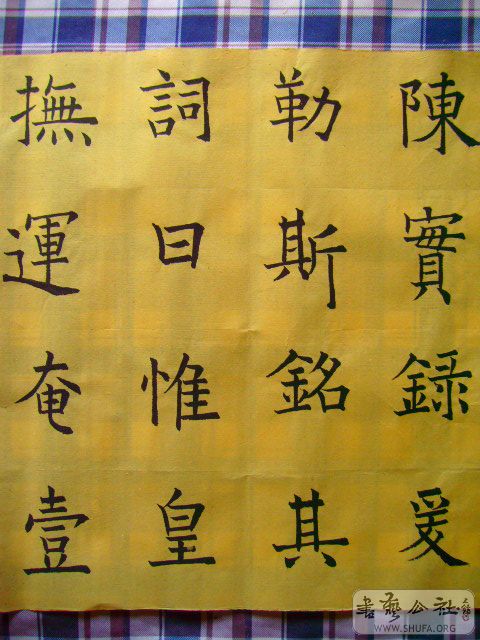 陳實録爰
勒斯銘其
詞曰惟皇
撫運奄壹
書藝公社
WWW.SHUFA.ORG